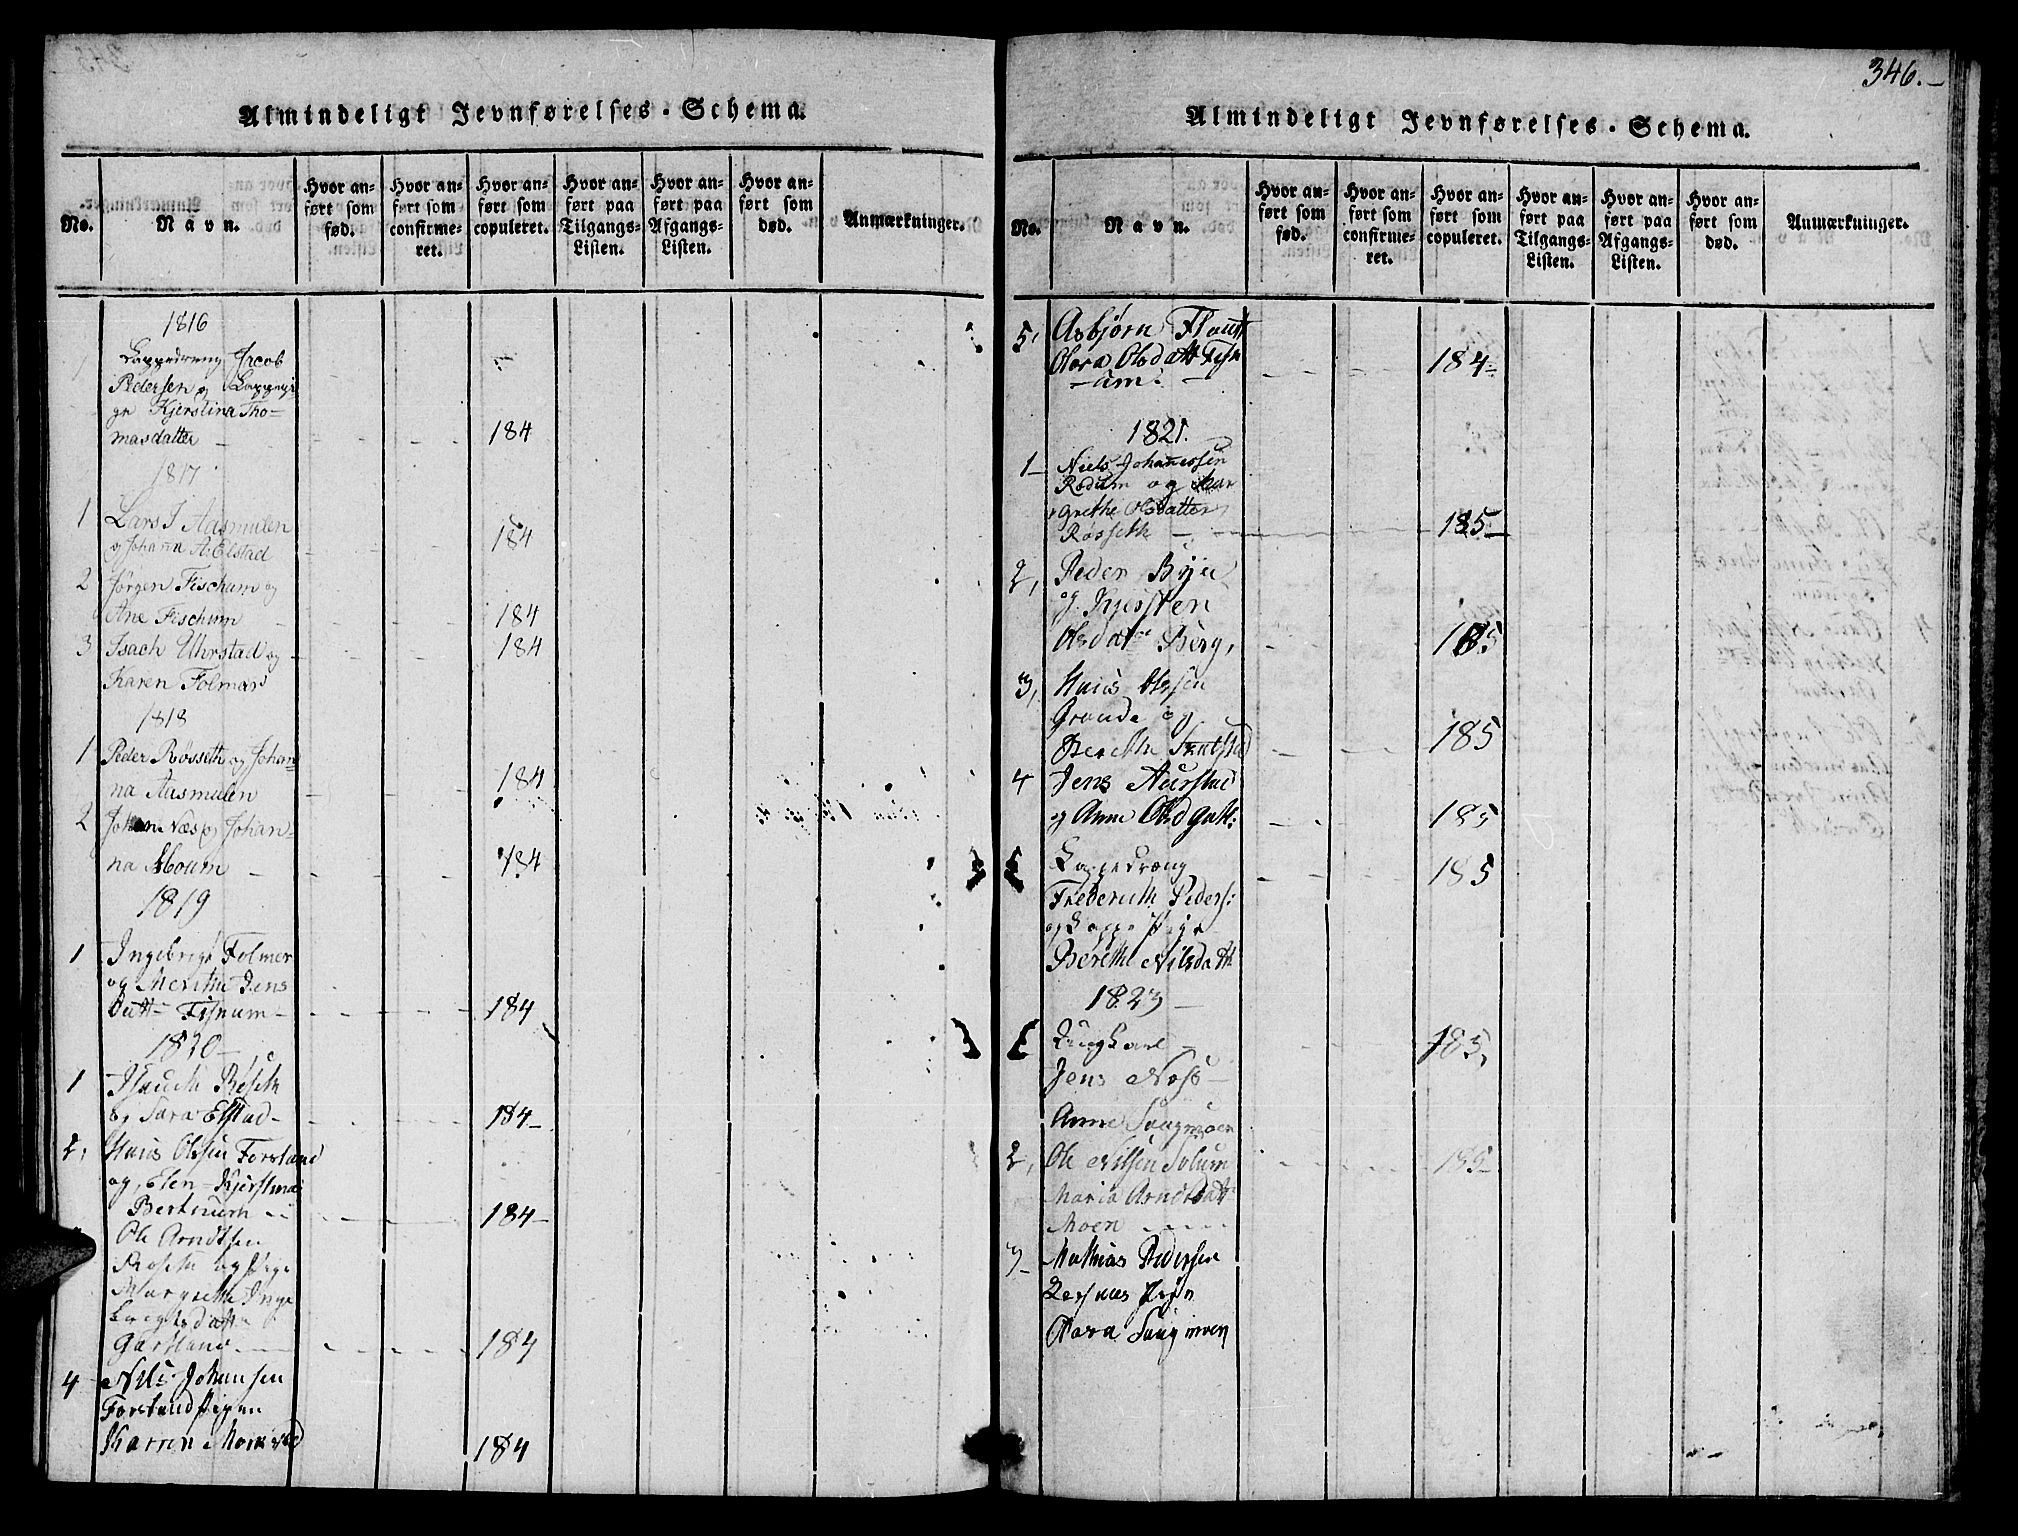 Almindeligt Jevnførelses-Schema.
No.
Navn.
Hvor anført som fød.
Hvor anført som confirmeret.
Hvor anført som copuleret.
Hvor anført paa Tilgangs-Listen.
Hvor anført paa Afgangs-Listen.
Hvor anført som død.
Anmærkninger.
1816
Lappedreng Jacob
Pedersen og Lappepi
ge Kjerstina Tho-
masdatter 184
1817
1 Lars J Aasmulen
og Johanna A. Elstad 184
2 Jørgen Fischam og
Ane Fischum 184
3 Isach Uhrstad og 184
Karen Folmar
1818
1 Peder Røsseth og Johan-
na Aasmulen 184
2 Johan Næs og Johan-
na Moum 184
1819
1 Ingebrigt Folmer
og Meretha Jens
Datt- Fisnum - 184
1820
1 Isach Røseth
og Sara Elstad - 184
2, Hans Olssen Forsland
og Elen Kjerstina
Bertnum 184
Ole Arndtsen
Roseth og Pige
Margrethe Inge
brigtsdatter
Gartland 184
4 Nils Johansen
Forsland Pigen
Karren Mork 184
346.
Almindeligt Jevnførelses-Schema.
No.
Navn.
Hvor anført som fød.
Hvor anført som confirmeret.
Hvor anført som copuleret.
Hvor anført paa Tilgangs-Listen.
Hvor anført paa Afgangs-Listen.
Hvor anført som død.
Anmærkninger.
5, Asbjørn
Olsdatt Fisn
um. 184
1821.
1 Niels Johannessen
Rødum og Mar
grethe Olsdatter
Røsseth 185
2, Peder Bye
og Kjersten
Olsdatr Berg, 185
3, Hans Olssen
Grande og
Berethe 185
4 Jens Aurstad
og Anne Olsd Gatt: 185
Lappedræng 185
Frederich Peders:
og Lappe Pige
Berethe Nilsdatt
1823
Ungkarl 185,
Jens Moss
Anne Saugmoen
2, Ole Nilsen Solum 185
Maria Arndtsdatt
Moen
3 Mathias Pedersen
Pige
Saugmoen